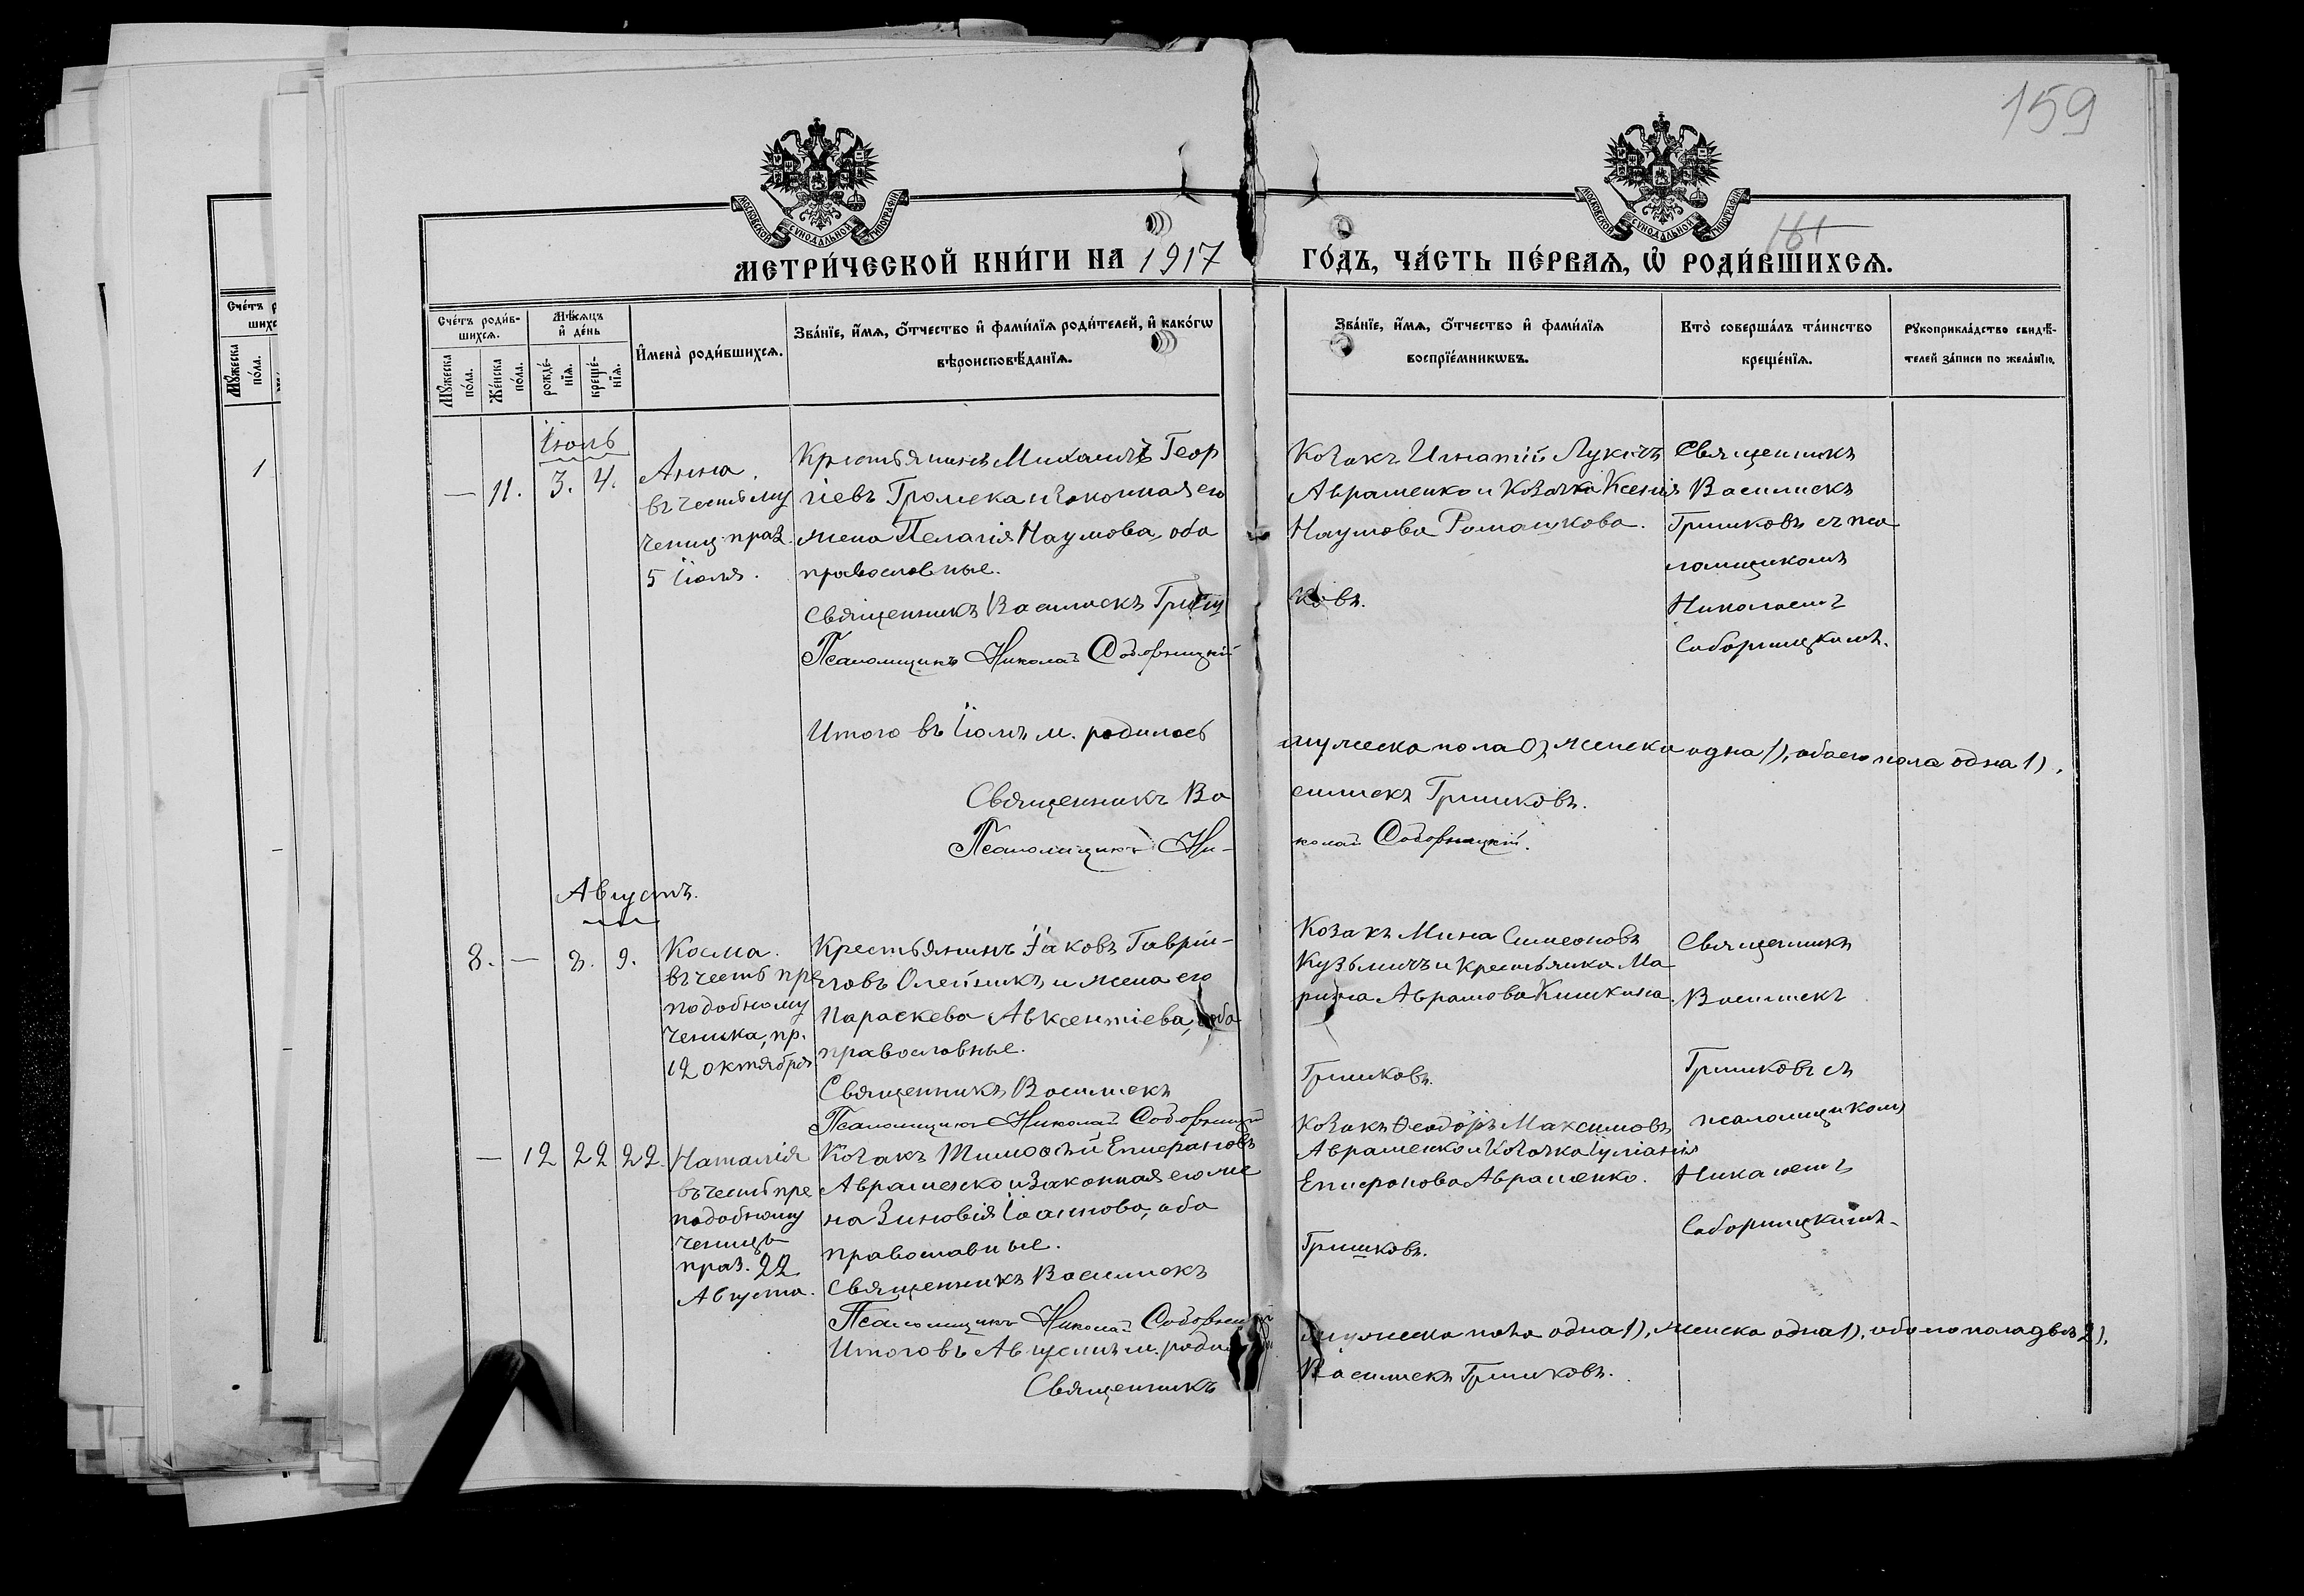 159
161
МОСКОВСКОЙ СУНОДАЛЬНОЙ ТИПОГРАФІИ
МОСКОВСКОЙ СУНОДАЛЬНОЙ ТИПОГРАФІИ
МЕТРИ́ЧЕСКОЙ КНИ́ГИ НА 1917 ГО́ДЪ, ЧА́СТЬ ПЕ́РВАѦ, Ѡ҆ РОДИ́ВШИХСѦ.
Сче́тъ роди́в-
шихсѧ.
Мꙋ́жеска по́ла.
Же́нска по́ла.
Мѣ́сѧцъ и҆ де́нь
рожде́-
нїѧ.
креще́-
нїѧ.
И҆мена̀ роди́вшихсѧ.
Зва́нїе, и҆́мѧ, ѻ҆́тчество и҆ фами́лїѧ роди́телей, и҆ како́гѡ
вѣроисповѣ́данїѧ.
Зва́нїе, и҆́мѧ, ѻ҆́тчество и҆ фами́лїѧ
воспрїе́мникѡвъ.
Кто̀ соверша́лъ та́инство
креще́нїѧ.
Рꙋкоприкла́дство свидѣ́-
телей за́писи по жела́нїю.
Сче́тъ р
шихс
Мꙋ́жеска по́ла.
1
Іюль
— 11. 3. 4.
Анна
въ честь му
чениц. праз.
5 Іюля.
Крестьянинъ Михаилъ Геор
гіевъ Громека и законная его
жена Пелагія Наумова, оба
православные.
Священникъ Василискъ Гриш
ковъ.
Псаломщикъ Николай Соборницкій
Козакъ Игнатій Лукичъ
Авраменко и Козачка Ксенія
Наумова Ромашкова.
Священникъ
Василискъ
Гришковъ съ пса
ломщикомъ
Николаемъ
Соборницкимъ.
Итого въ Іюлѣ м. родилось мужеска пола 0), женска одна 1), обоего пола одна 1).
Священникъ Ва силискъ Гришковъ.
Псаломщикъ Ни- колай Соборницкій.
Августъ.
8. — 8. 9.
Косма.
въ честь пре
подобному
ченика, пр.
12 октября
Крестьянинъ Іаковъ Гаврі-
ловъ Олейникъ и жена его
Параскева Авксентіева, оба
православные.
Священникъ Василискъ Гришковъ.
Псаломщикъ Николай Соборницкій
Козакъ Мина Симеоновъ
Кузьмичъ и крестьянка Ма
рина Абрамова Кишкина.
Священникъ
Василискъ
Гришковъ съ
псаломщикомъ
Николаемъ
Соборницкимъ.
— 12 22 22.
Наталія
въ честь пре
подобному
ченицы
праз. 22
Августа.
Козакъ Тимоѳей Епифановъ
Авраменко и законная его же
на Зиновія Іоаннова, оба
православные.
Священникъ Василискъ Гришковъ.
Псаломщикъ Николай Соборницкій
Козакъ Ѳеодоръ Максимовъ
Авраменко и Козачка Іуліанія
Епифанова Авраменко.
Итого въ Августѣ м. роди мужеска пола одна 1), женска одна 1), обоего пола двѣ 2).
Священникъ Василискъ Гришковъ.